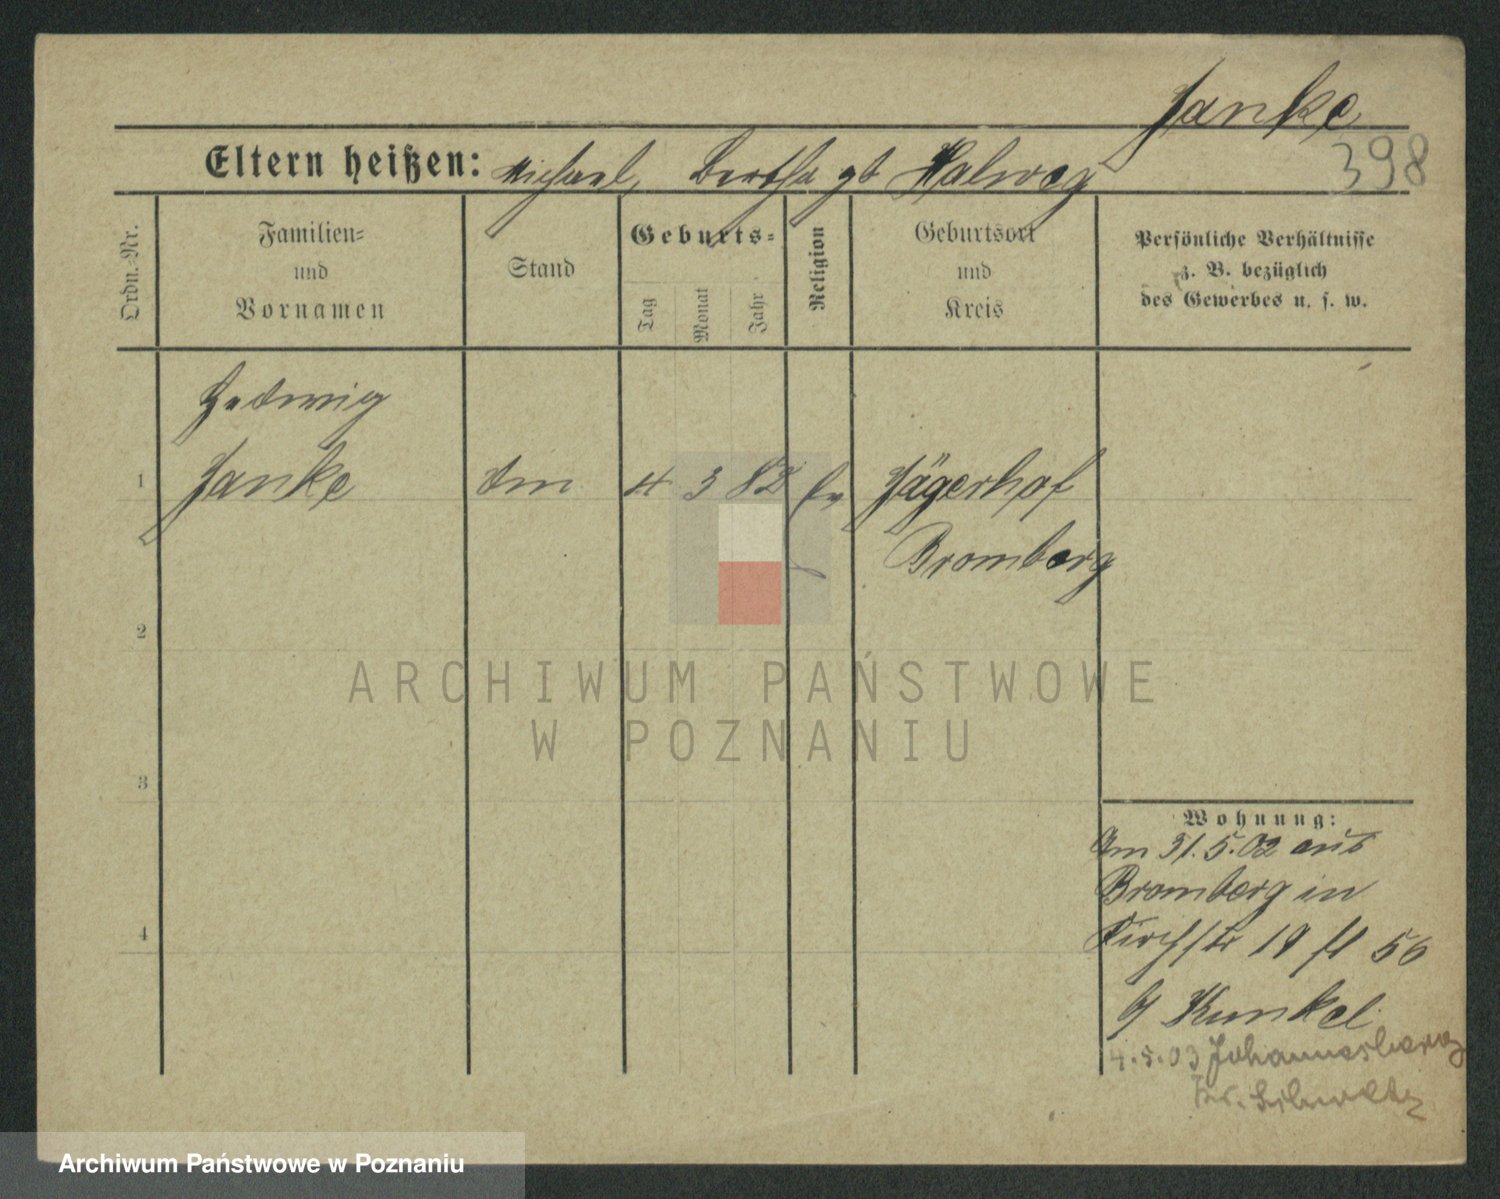 Janke
398
Eltern heißen: Michael, Bertha gb Halweg
Ordn.-Nr.
Familien=
und
Vornamen
Stand
Geburts=
Tag
Monat
Jahr
Religion
Geburtsort
und
Kreis
Persönliche Verhältnisse
z. B. bezüglich
des Gewerbes u. s. w.
Hedwig
1 Janke 4 3 82 ev Jägerhof
Bromberg
2
3
4
Wohnung:
Am 31.5.02 aus
Bromberg in
Kirchstr 19 56
Kunkel
4.5.03 Johannesberg
Kr.
ARCHIWUM PAŃSTWOWE
W POZNANIU
Archiwum Państwowe w Poznaniu